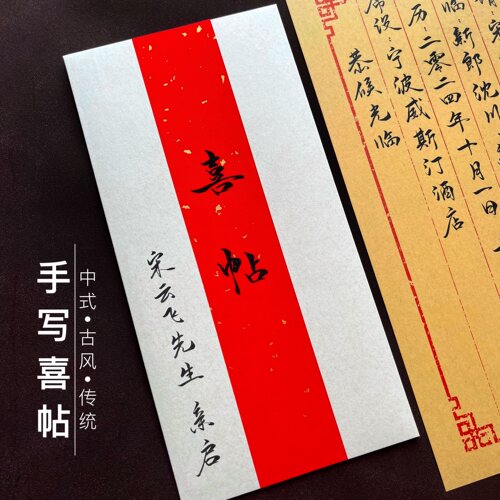 手写喜帖
中式·古风·传统
喜帖
宋云飞先生 亲启
临 新郎 沈川
历 二零二四年十月一日
席设 宁波威斯汀酒店
恭候光临